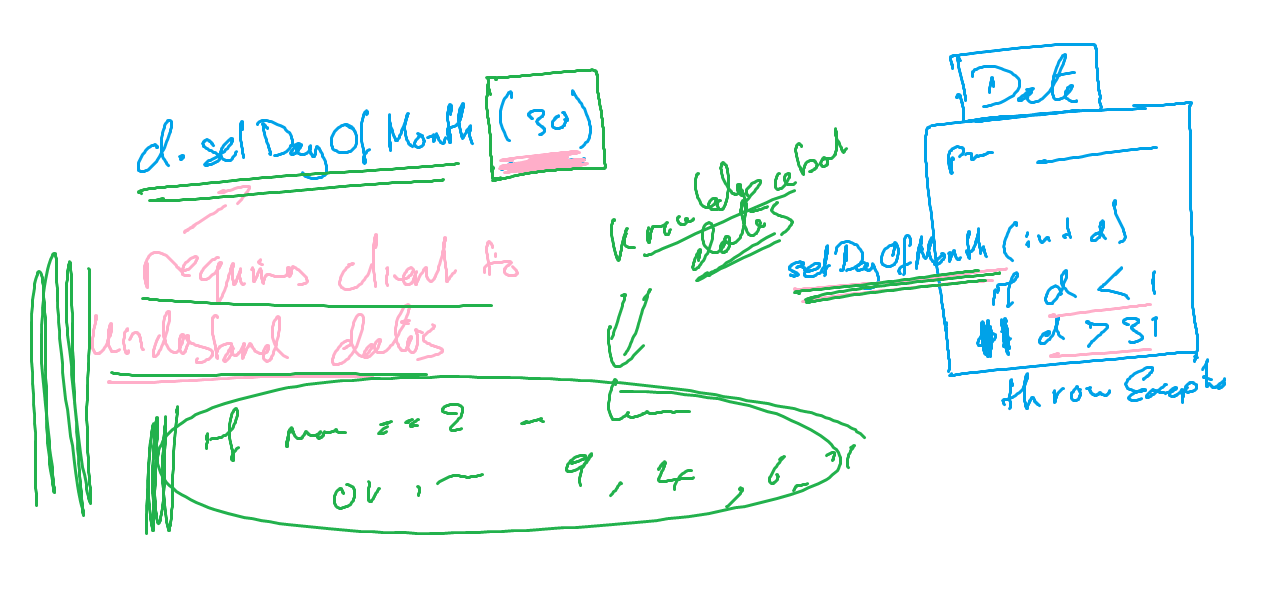 d. setDayOfMonth (30)
requires client to
understand dates
knowledge about
dates
if mon == 2 -
or, 9, 4, 6, 11
Date
setDayOfMonth (int d)
if d < 1
|| d > 31
throw Exceptio